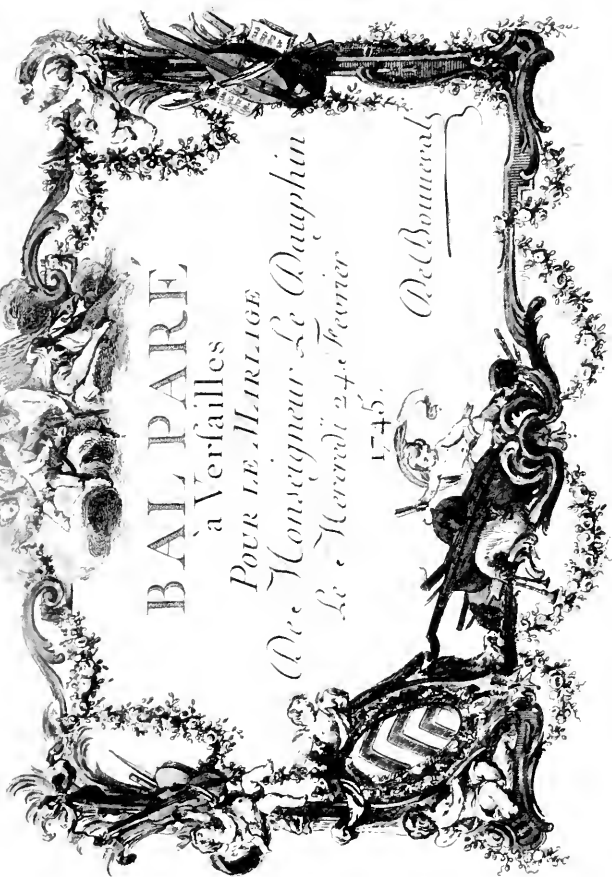 BAL PARÉ
à Versailles
POUR LE MARIAGE
De Monseigneur Le Dauphin
Le Mercredi 24. Fevrier
1745.
De Bonneval